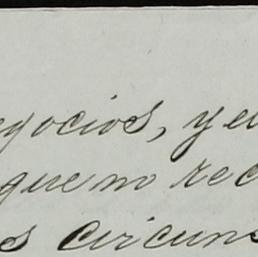 egocios, y el
que no rec
s circuns